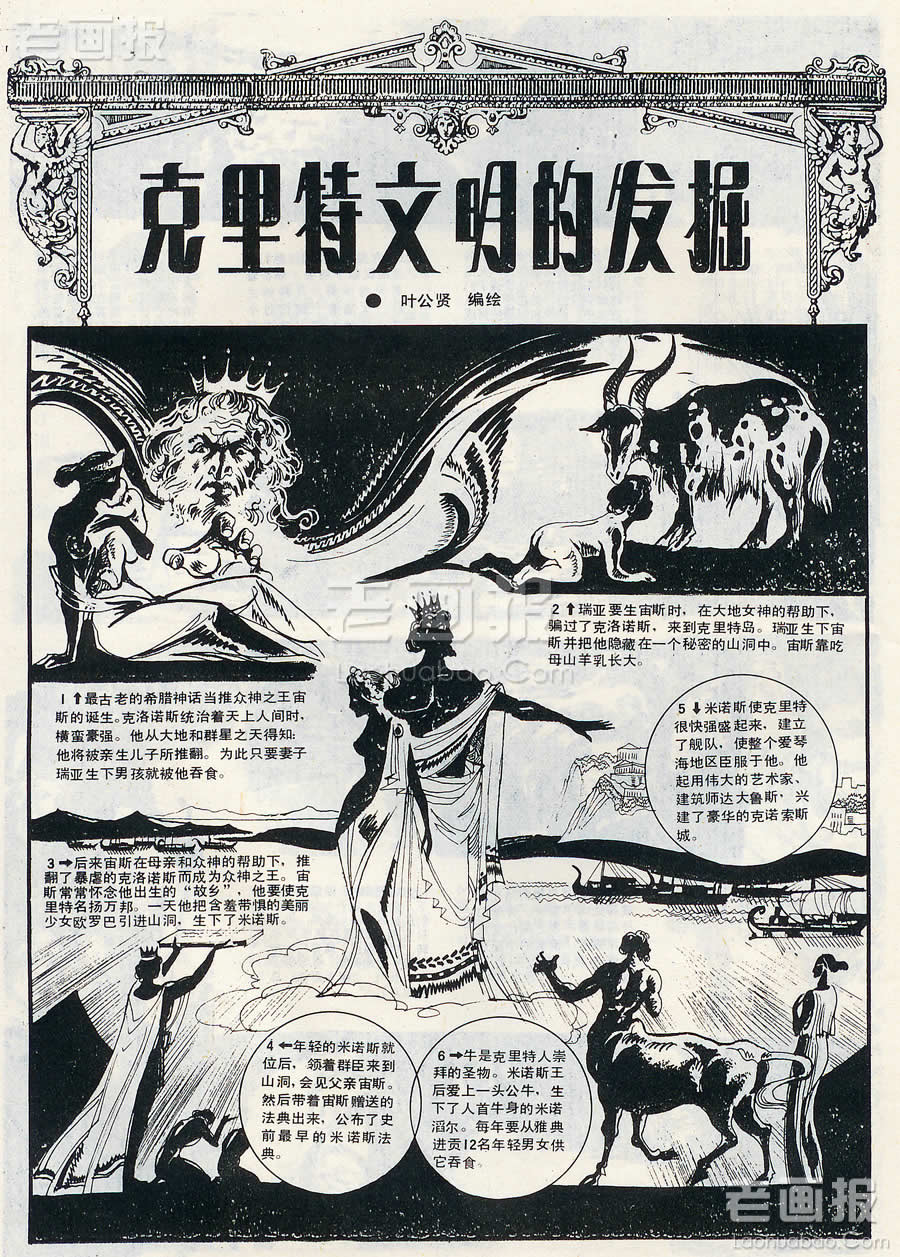 老画报
克里特文明的发掘
● 叶公贤 编绘
1↑最古老的希腊神话当推众神之王宙
斯的诞生。克洛诺斯统治着天上人间时,
横蛮豪强。他从大地和群星之天得知:
他将被亲生儿子所推翻。为此只要妻子
瑞亚生下男孩就被他吞食。
2↑瑞亚要生宙斯时,在大地女神的帮助下,
骗过了克洛诺斯,来到克里特岛。瑞亚生下宙
斯并把他隐藏在一个秘密的山洞中。宙斯靠吃
母山羊乳长大。
老画报
Laohuabao.Com
3→后来宙斯在母亲和众神的帮助下,推
翻了暴虐的克洛诺斯而成为众神之王。宙
斯常常怀念他出生的“故乡”,他要使克
里特名扬万邦。一天他把含羞带惧的美丽
少女欧罗巴引进山洞,生下了米诺斯。
4←年轻的米诺斯就
位后,领着群臣来到
山洞,会见父亲宙斯。
然后带着宙斯赠送的
法典出来,公布了史
前最早的米诺斯法
典。
5↓米诺斯使克里特
很快强盛起来,建立
了舰队,使整个爱琴
海地区臣服于他。他
起用伟大的艺术家、
建筑师达大鲁斯,兴
建了豪华的克诺索斯
城。
6→牛是克里特人崇
拜的圣物。米诺斯王
后爱上一头公牛,生
下了人首牛身的米诺
滔尔。每年要从雅典
进贡12名年轻男女供
它吞食。
老画报
Laohuabao.Com